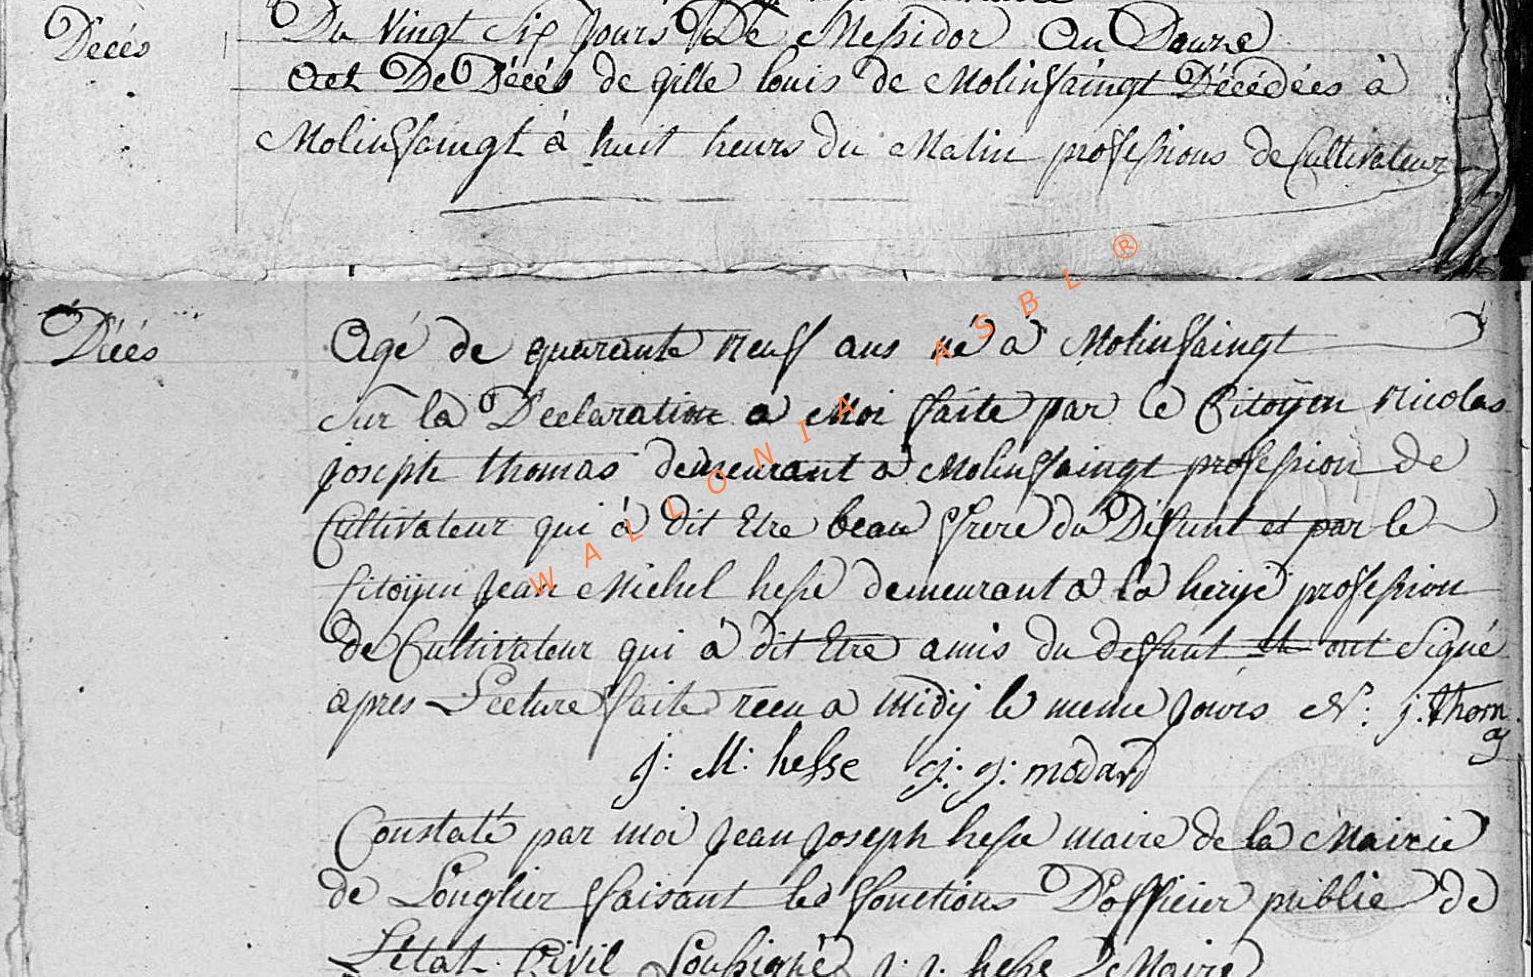 Décés
Du Vingt Six Jours De Messidor An Douze
Act De Décés de gille louis de Molinfaingt Décédées à
Molinfaingt à huit heurs du Matin professions de Cultivateur
Décés
Agé de quarante neuf ans né à Molinfaingt
Sur la Déclaration a Moi faite par le Citoÿen nicolas
joseph thomas demeurant a Molinfaingt profession de
Cultivateur qui à dit Etre beau frere du Défunt et par le
Citoÿen Jean Michel hesse demeurant a la herije profession
de Cultivateur qui à dit Etre amis du defunt et ont Signé
apres Lecture faite recu a Midÿ le meme Jours N: j: thom
as
J: M: hesse J: J: modard
Constaté par moi Jean Joseph hesse maire de la Mairie
de Longlier faisant les fonctions D'officier publie de
L'état Civil Soussigné J: J: hesse Maire
WALLONIA ASBL ®